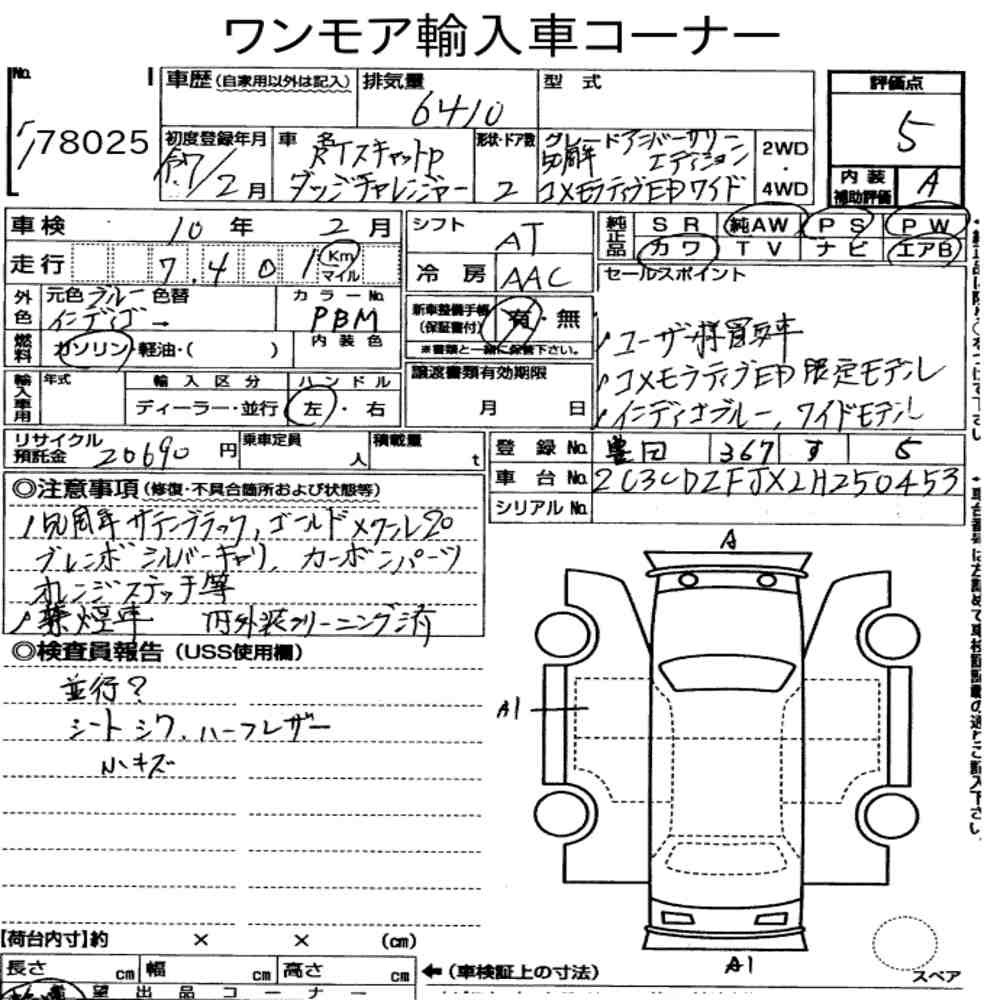 ワンモア輸入車コーナー
No.
78025
車歴(自家用以外は記入)
排気量
6410
型式
評価点
5
初度登録年月
R7/2月
車名
R/Tスキャットp
ダッジチャレンジャー
形状・ドア数
2
グレード アニバーサリー
50周年 エディション
コメモラティブED ワイド
2WD
・
4WD
内装
補助評価
A
車検 10年 2月
シフト AT
純正品
SR 純AW PS PW
カワ TV ナビ エアB
走行 7.401 Km マイル
冷房 AAC
セールスポイント
外色
元色 ブルー 色替
インディゴ →
カラーNo.
PBM
新車整備手帳
(保証書付) 有・無
※書類と一緒に保管下さい。
ユーザー様買取車
コメモラティブED 限定モデル
インディゴブルー、ワイドモデル
燃料
ガソリン・軽油・( )
内装色
譲渡書類有効期限
月 日
輸入車用
年式
輸入区分
ディーラー・並行
ハンドル
左・右
リサイクル
預託金 20690円
乗車定員
人
積載量
t
登録No. 豊田 367 す 5
車台No. 2C3CDZFJXLH250453
シリアルNo.
◎注意事項(修復・不具合箇所および状態等)
50周年 サテンブラック、ゴールドメタル20
ブレンボ シルバーキャリ、カーボンパーツ
オレンジステッチ等
禁煙車 内外装クリーニング済
◎検査員報告(USS使用欄)
並行?
シート シワ、ハーフレザー
小キズ
A
A1
A1
スペア
【荷台内寸】約 × × (cm)
長さ cm 幅 cm 高さ cm
←(車検証上の寸法)
希望出品コーナー